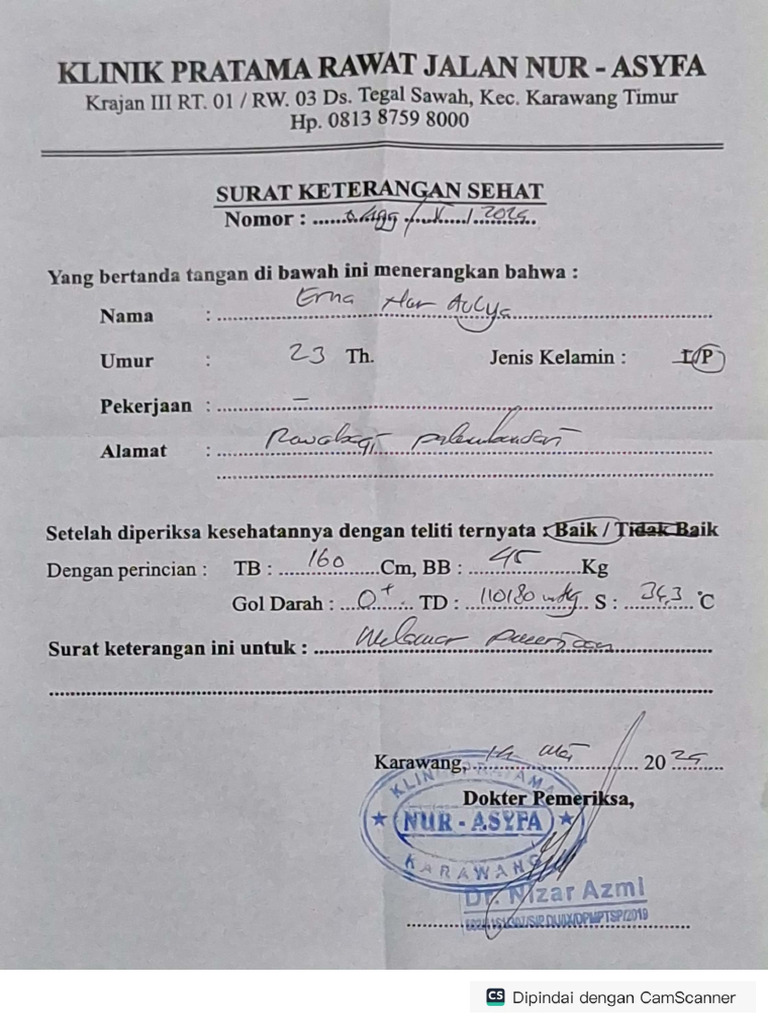 KLINIK PRATAMA RAWAT JALAN NUR - ASYFA
Krajan III RT. 01 / RW. 03 Ds. Tegal Sawah, Kec. Karawang Timur
Hp. 0813 8759 8000
SURAT KETERANGAN SEHAT
Nomor :
Yang bertanda tangan di bawah ini menerangkan bahwa :
Nama : Erna Nur Aulya
Umur : 23 Th. Jenis Kelamin : L/P
Pekerjaan : –
Alamat :
Setelah diperiksa kesehatannya dengan teliti ternyata : Baik / Tidak Baik
Dengan perincian : TB : 160 Cm, BB : 45 Kg
Gol Darah : O+ TD : 110/80 mmHg S : 34,3 °C
Surat keterangan ini untuk : Melamar pekerjaan
Karawang, Mei 2025
Dokter Pemeriksa,
KLINIK PRATAMA
NUR - ASYFA
KARAWANG
Dr. Nizar Azmi
CS Dipindai dengan CamScanner